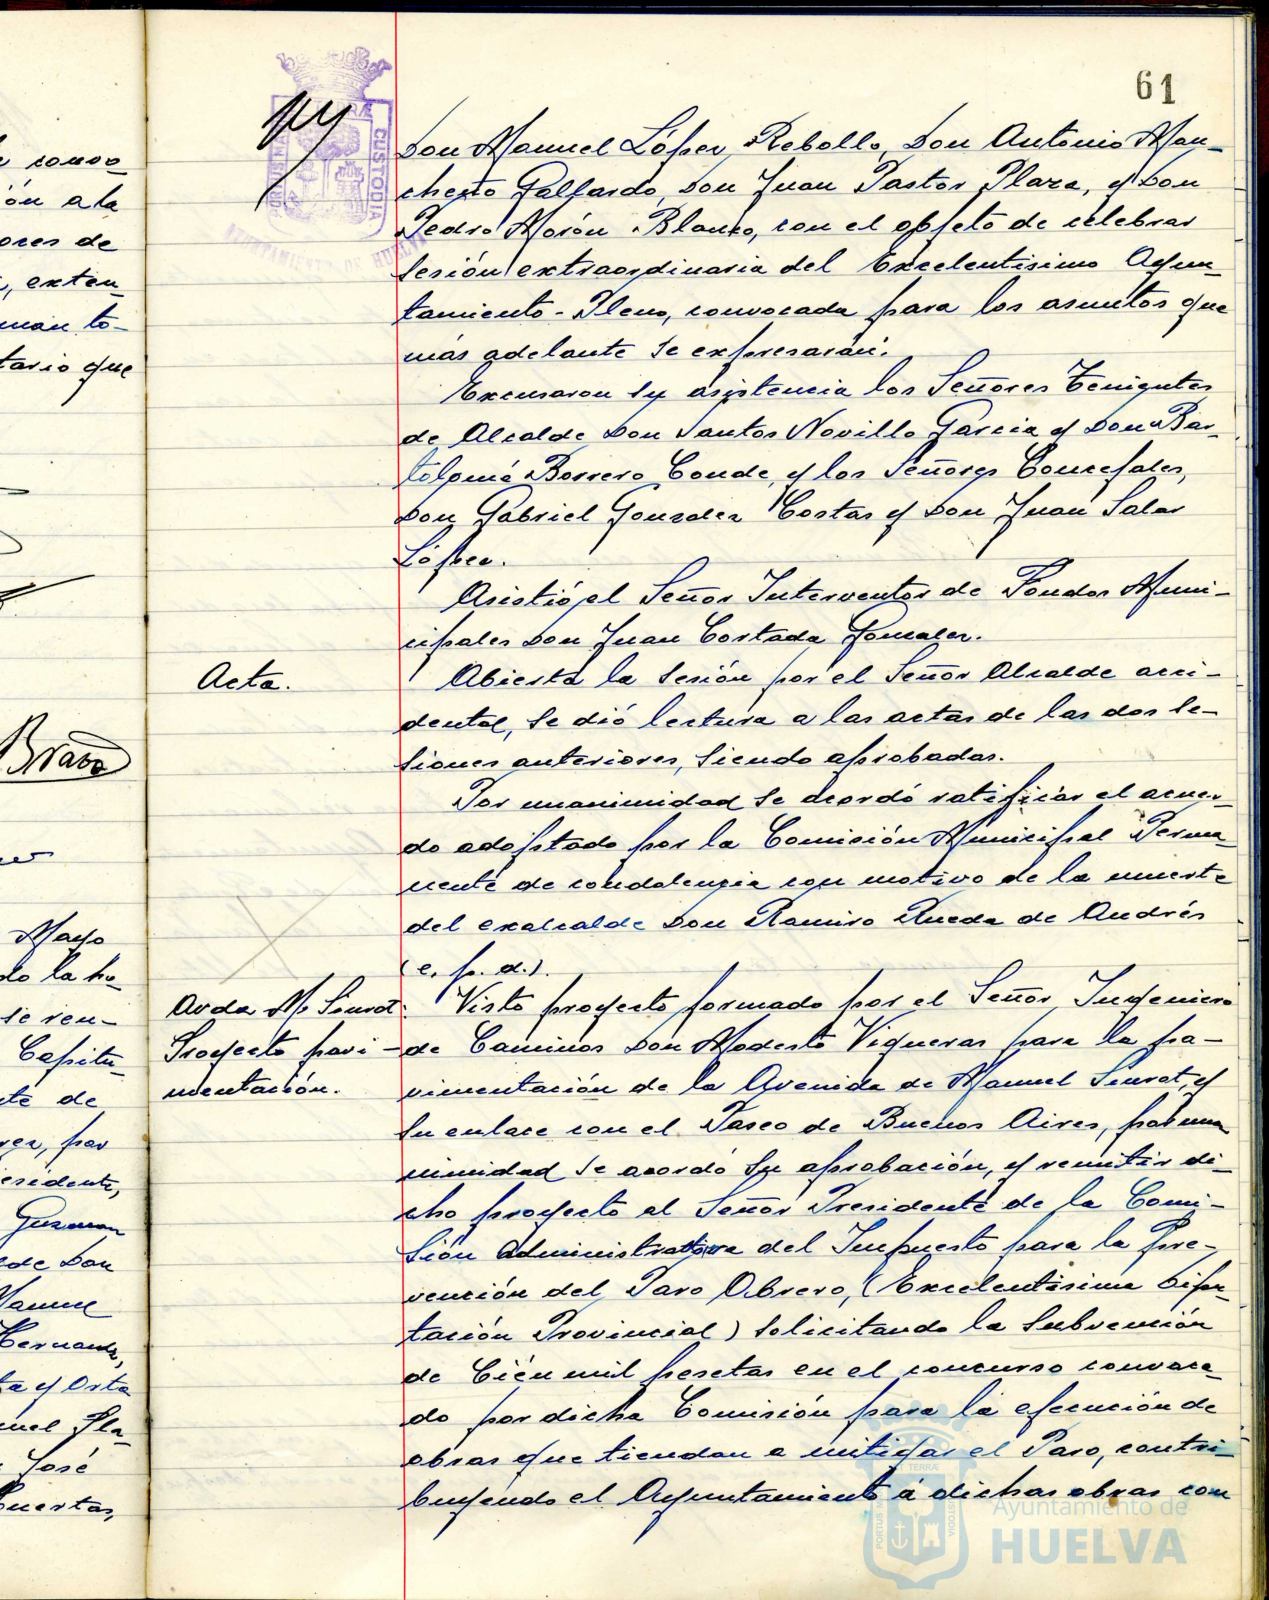 61
Don Manuel López Rebollo, Don Antonio Man-
cheño Gallardo, Don Juan Pastor Plaza, y Don
Pedro Morón Blanco, con el objeto de celebrar
sesión extraordinaria del Excelentísimo Ayun-
tamiento-Pleno, convocada para los asuntos que
más adelante se expresarán.
Excusaron su asistencia los Señores Tenientes
de Alcalde Don Santos Novillo García y Don Bar-
tolomé Borrero Conde, y los Señores Concejales,
Don Gabriel Gonzalez Costas y Don Juan Salas
López.
Asistió el Señor Interventor de Fondos Muni-
cipales Don Juan Cortada Gonzalez.
Acta.
Abierta la sesión por el Señor Alcalde acci-
dental, se dió lectura a las actas de las dos se-
siones anteriores, siendo aprobadas.
Por unanimidad se acordó ratificar el acuer-
do adoptado por la Comisión Municipal Perma-
nente de condolencia con motivo de la muerte
del exalcalde Don Ramiro Rueda de Andrés
(e. p. d.).
Avda M. Siurot.
Proyecto pavi-
mentación.
Visto proyecto formado por el Señor Ingeniero
de Caminos Don Modesto Vigueras para la pa-
vimentación de la Avenida de Manuel Siurot, y
su enlace con el Paseo de Buenos Aires, por una
nimidad se acordó su aprobación, y remitir di-
cho proyecto al Señor Presidente de la Comi-
sión Administrativa del Impuesto para la Pre-
vención del Paro Obrero, (Excelentísima Dipu-
tación Provincial) solicitando la subvención
de Cien mil pesetas en el concurso convoca-
do por dicha Comisión para la ejecución de
obras que tiendan a mitigar el Paro, contri-
buyendo el Ayuntamiento á dichas obras con
CUSTODIA
Ayuntamiento de
HUELVA
ón a la
ores de
, exten-
tario que
Bravo
Mayo
do la ho-
se reu-
Capitu-
te de
, por
esidente,
Guzman
de Don
Manuel
Hernandez,
ta y Orta
nuel Pla-
José
Puertas,